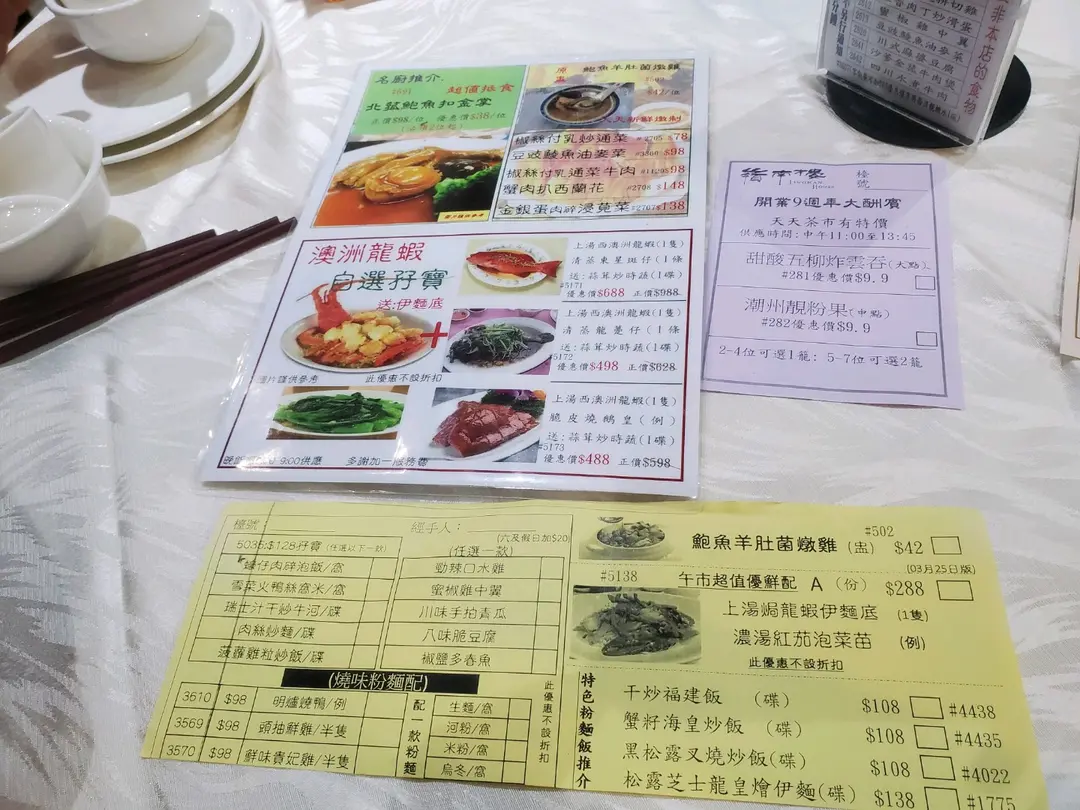 名廚推介
超值抵食
北菰鮑魚扣金掌
正價$98/位 優惠價$38/位
鮑魚羊肚菌燉雞
$42/位
天天新鮮燉制
椒絲付乳炒通菜 #2705 $78
豆豉鯪魚油麥菜 $98
椒絲付乳通菜牛肉 $98
蟹肉扒西蘭花 #2708 $148
金銀蛋肉碎浸莧菜 #2707 $138
圖片謹供參考
澳洲龍蝦
自選孖寶
送:伊麵底
+
上湯西澳洲龍蝦(1隻)
清蒸東星斑仔(1條
送:蒜茸炒時蔬(1碟)
#5171
優惠價$688 正價$988
上湯西澳洲龍蝦(1隻)
清蒸龍躉仔(1條
送:蒜茸炒時蔬(1碟)
#5172
優惠價$498 正價$628
上湯西澳洲龍蝦(1隻)
脆皮燒鵝皇(例)
送:蒜茸炒時蔬(1碟)
#5173
優惠價$488 正價$598
此優惠不設折扣
9:00供應 多謝加一服務費
非本店的食物
川式麻婆豆腐
四川水煮牛肉
檯號
開業9週年大酬賓
天天茶市有特價
供應時間:中午11:00至13:45
甜酸五柳炸雲吞(大點)
#281優惠價$9.9
潮州靚粉果(中點)
#282優惠價$9.9
2-4位可選1籠; 5-7位可選2籠
檯號
經手人:
(六及假日加$20)
5035:$128孖寶(任選以下一款)
蠔仔肉碎泡飯/窩
雪菜火鴨絲窩米/窩
瑞士汁干炒牛河/碟
肉絲炒麵/碟
菠蘿雞粒炒飯/碟
(任選一款)
勁辣口水雞
蜜椒雞中翼
川味手拍青瓜
八味脆豆腐
椒鹽多春魚
(燒味粉麵配)
3510 $98 明爐燒鴨/例
3569 $98 頭抽鮮雞/半隻
3570 $98 鮮味貴妃雞/半隻
配一款粉麵
生麵/窩
河粉/窩
米粉/窩
烏冬/窩
此優惠不設折扣
#502
鮑魚羊肚菌燉雞(盅) $42
(03月25日版)
#5138
午市超值優鮮配 A (份) $288
上湯焗龍蝦伊麵底 (1隻)
濃湯紅茄泡菜苗 (例)
此優惠不設折扣
特色粉麵飯推介
干炒福建飯 (碟) $108 #4438
蟹籽海皇炒飯 (碟) $108 #4435
黑松露叉燒炒飯(碟) $108 #4022
松露芝士龍皇燴伊麵(碟) $138 #1775